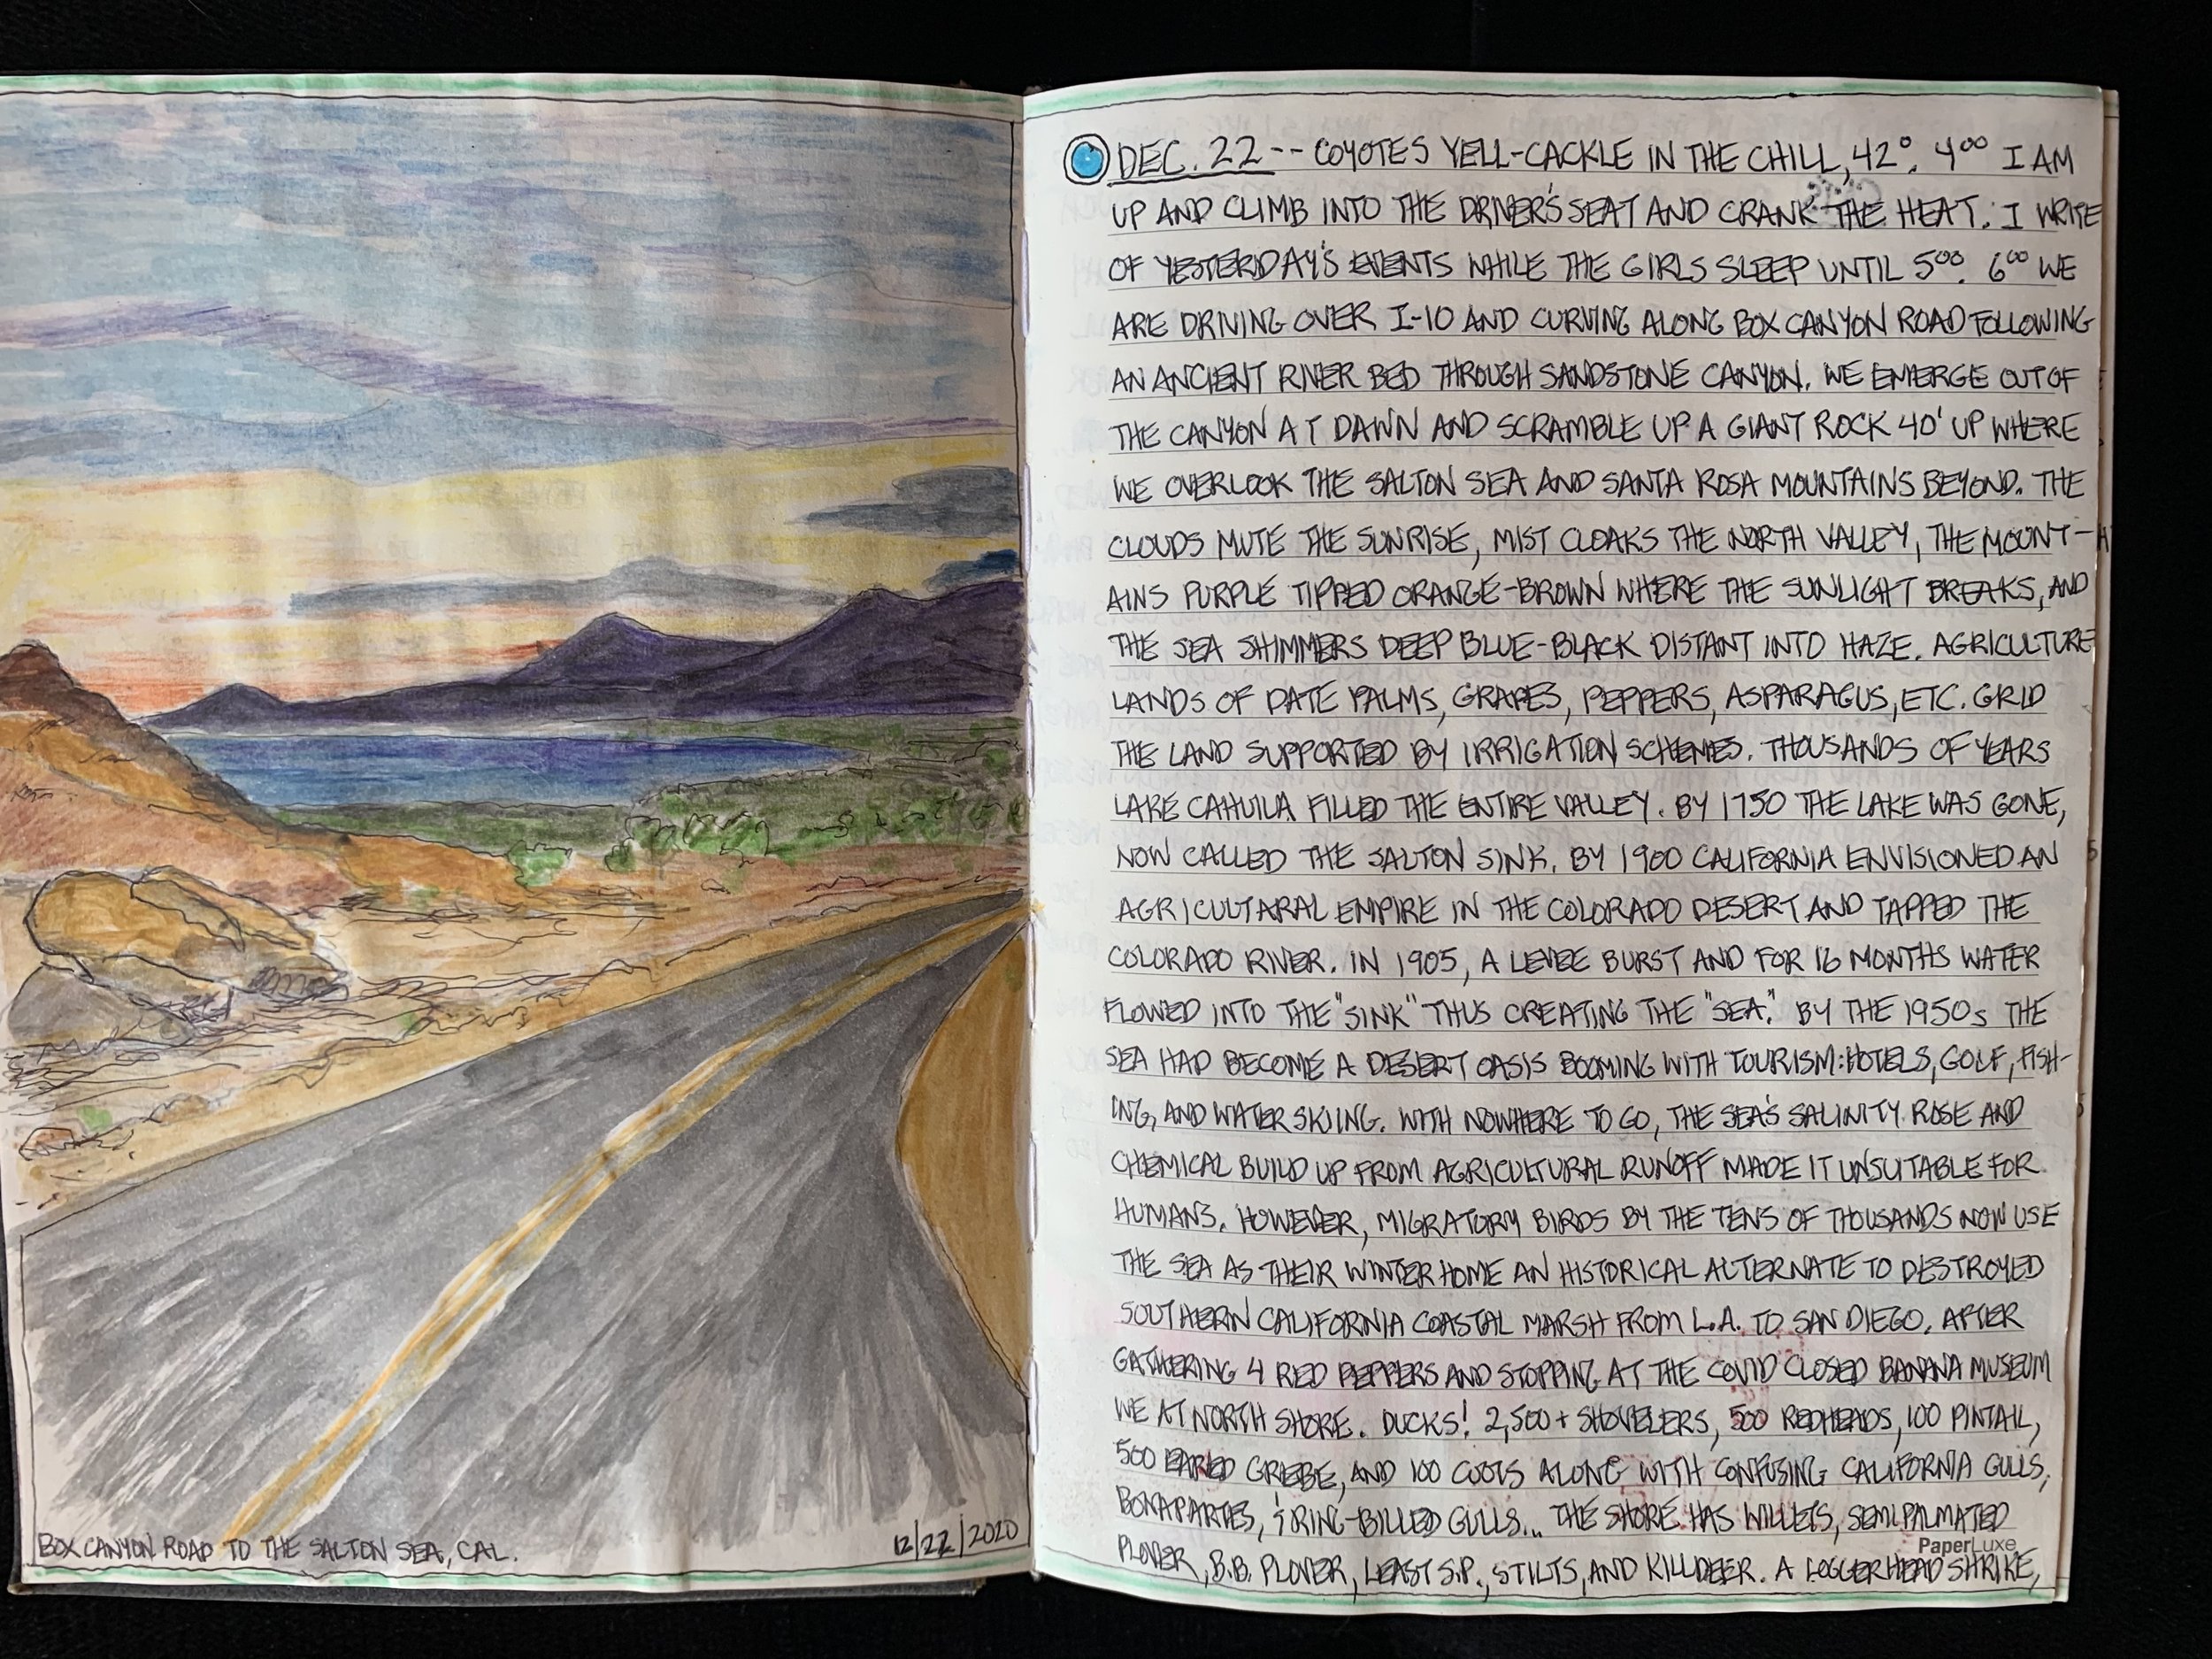 BOX CANYON ROAD TO THE SALTON SEA, CAL.
12/22/2020
DEC. 22 -- COYOTES YELL-CACKLE IN THE CHILL, 42°. 4⁰⁰ I AM
UP AND CLIMB INTO THE DRIVER'S SEAT AND CRANK THE HEAT. I WRITE
OF YESTERDAY'S EVENTS WHILE THE GIRLS SLEEP UNTIL 5⁰⁰. 6⁰⁰ WE
ARE DRIVING OVER I-10 AND CURVING ALONG BOX CANYON ROAD FOLLOWING
AN ANCIENT RIVER BED THROUGH SANDSTONE CANYON. WE EMERGE OUT OF
THE CANYON AT DAWN AND SCRAMBLE UP A GIANT ROCK 40' UP WHERE
WE OVERLOOK THE SALTON SEA AND SANTA ROSA MOUNTAINS BEYOND. THE
CLOUDS MUTE THE SUNRISE, MIST CLOAKS THE NORTH VALLEY, THE MOUNT-
AINS PURPLE TIPPED ORANGE-BROWN WHERE THE SUNLIGHT BREAKS, AND
THE SEA SHIMMERS DEEP BLUE-BLACK DISTANT INTO HAZE. AGRICULTURE
LANDS OF DATE PALMS, GRAPES, PEPPERS, ASPARAGUS, ETC. GRID
THE LAND SUPPORTED BY IRRIGATION SCHEMES. THOUSANDS OF YEARS
LAKE CAHUILA FILLED THE ENTIRE VALLEY. BY 1750 THE LAKE WAS GONE,
NOW CALLED THE SALTON SINK. BY 1900 CALIFORNIA ENVISIONED AN
AGRICULTARAL EMPIRE IN THE COLORADO DESERT AND TAPPED THE
COLORADO RIVER. IN 1905, A LEVEE BURST AND FOR 16 MONTHS WATER
FLOWED INTO THE "SINK" THUS CREATING THE "SEA." BY THE 1950s THE
SEA HAD BECOME A DESERT OASIS BOOMING WITH TOURISM: HOTELS, GOLF, FISH-
ING, AND WATER SKIING. WITH NOWHERE TO GO, THE SEA'S SALINITY ROSE AND
CHEMICAL BUILD UP FROM AGRICULTURAL RUNOFF MADE IT UNSUITABLE FOR
HUMANS. HOWEVER, MIGRATORY BIRDS BY THE TENS OF THOUSANDS NOW USE
THE SEA AS THEIR WINTER HOME AN HISTORICAL ALTERNATE TO DESTROYED
SOUTHERN CALIFORNIA COASTAL MARSH FROM L.A. TO SAN DIEGO. AFTER
GATHERING 4 RED PEPPERS AND STOPPING AT THE COVID CLOSED BANANA MUSEUM
WE AT NORTH SHORE. DUCKS! 2,500+ SHOVELERS, 500 REDHEADS, 100 PINTAIL,
500 EARED GREBE, AND 100 COOTS ALONG WITH CONFUSING CALIFORNIA GULLS,
BONAPARTES, & RING-BILLED GULLS... THE SHORE HAS WILLETS, SEMIPALMATED
PLOVER, B.B. PLOVER, LEAST S.P., STILTS, AND KILLDEER. A LOGGERHEAD SHRIKE,
PaperLuxe